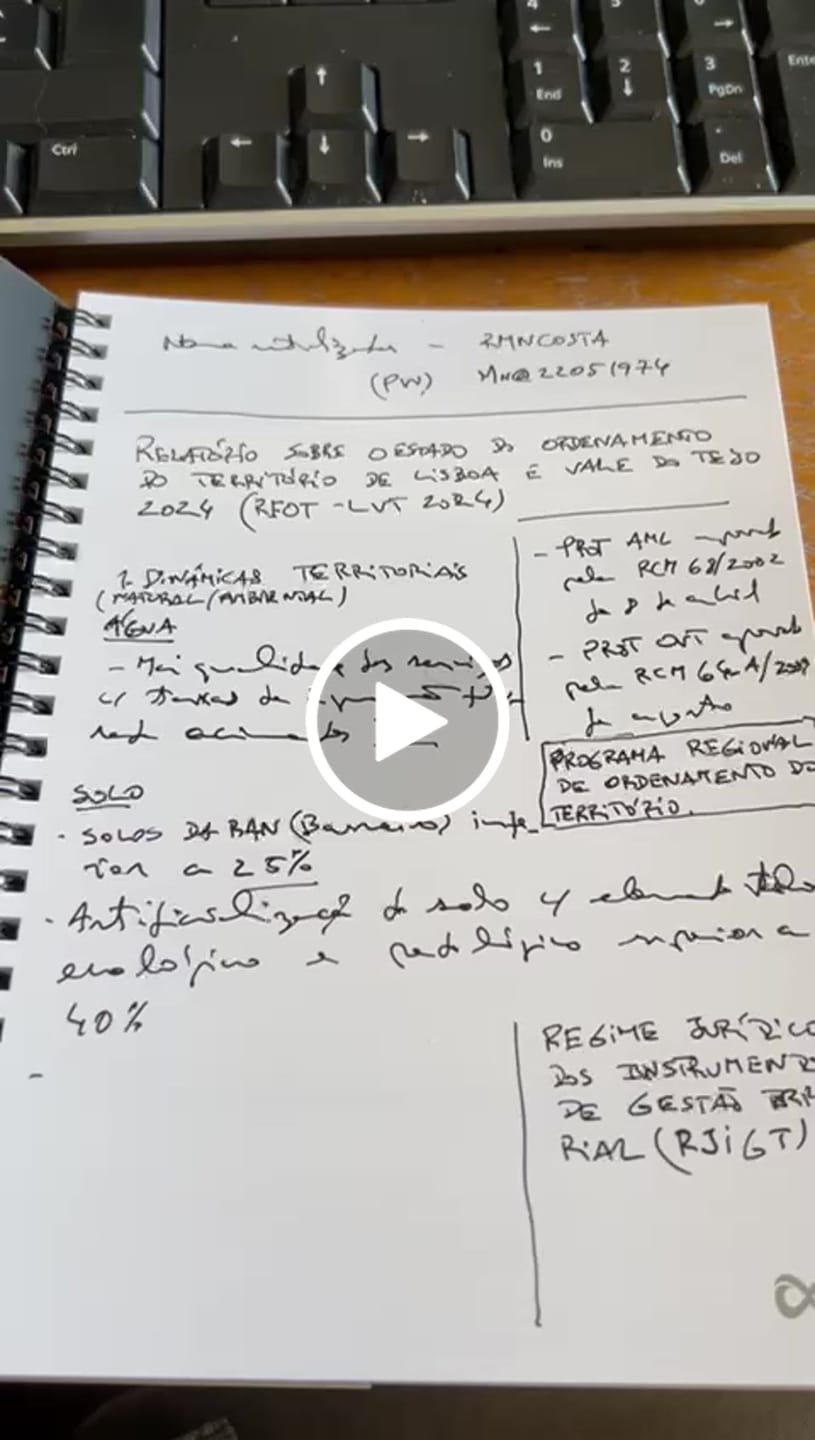 4
←
5
6
→
1
End
2
↓
3
PgDn
Ente
0
Ins
.
Del
Ctrl
↑
←
↓
→
Nome utilizador - RMNCOSTA
(PW) MN@22051974
RELATÓRIO SOBRE O ESTADO DO ORDENAMENTO
DO TERRITÓRIO DE LISBOA E VALE DO TEJO
2024 (REOT-LVT 2024)
1. DINÂMICAS TERRITORIAIS
(NATURAL/AMBIENTAL)
ÁGUA
- Mais qualidade dos serviços
c/ de
rede
SOLO
· SOLOS DA RAN (Barreiro) infe-
rior a 25%
· Artificialização do solo c/ elevado valor
ecológico e pedológico superior a
40%
-
- PROT AML aprovado
pela RCM 68/2002
de 8 de abril
- PROT OVT aprovado
pela RCM 64-A/2009
de agosto
PROGRAMA REGIONAL
DE ORDENAMENTO DO
TERRITÓRIO.
REGIME JURÍDICO
DOS INSTRUMENTO
DE GESTÃO TERRI
RIAL (RJIGT)